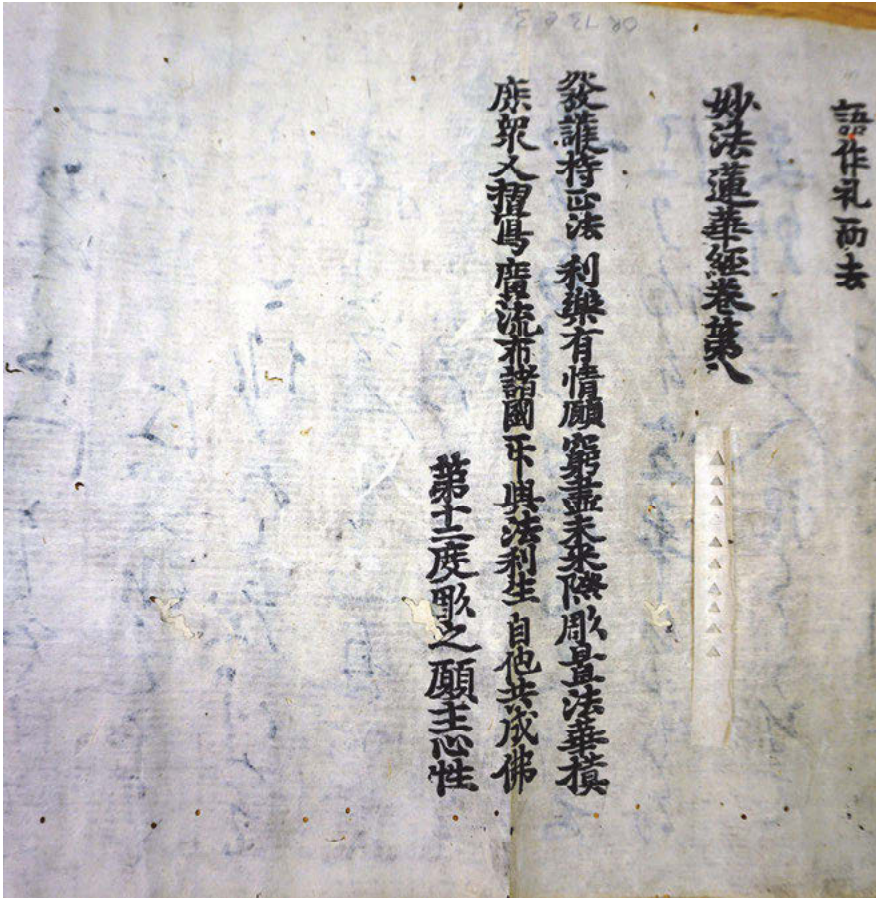 語作礼而去
妙法蓮華經卷第八
發護持正法利樂有情願窮盡未來際彫置法華摸
庶衆人摺寫廣流布諸國興法利生自他共成佛
第十三度彫之願主心性